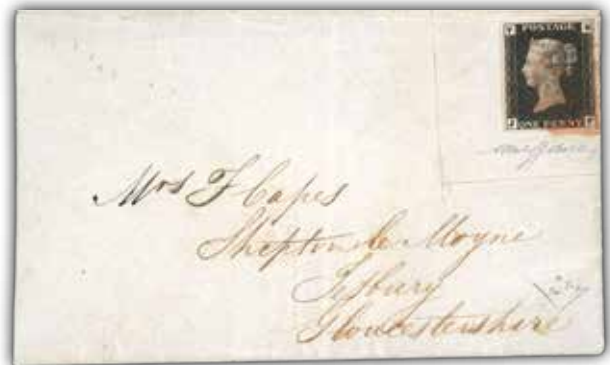 POSTAGE
ONE PENNY
Mrs F Capes
Shepton le Moyne
Tetbury
Gloucestershire